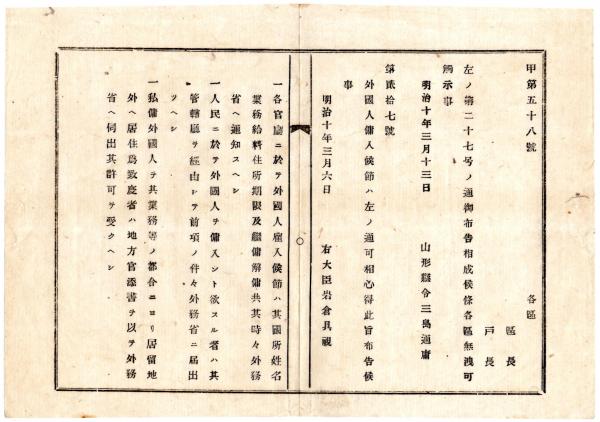 甲第五十八號
各區
區長
戸長
左ノ第二十七号ノ通御布告相成候條各區無洩可
觸示事
明治十年三月十三日
山形縣令三島通庸
第貳拾七號
外國人傭入候節ハ左ノ通可相心得此旨布告候
事
明治十年三月六日
右大臣岩倉具視
一各官廳ニ於テ外國人雇入候節ハ其國所姓名
業務給料住所期限及繼傭解傭共其時々外務
省ヘ通知スヘシ
一人民ニ於テ外國人ヲ傭入ント欲スル者ハ其
管轄廳ヲ經由シテ前項ノ件々外務省ニ屆出
ツヘシ
一私傭外國人ヲ其業務等ノ都合ニヨリ居留地
外ヘ居住爲致度者ハ地方官添書ヲ以テ外務
省ヘ伺出其許可ヲ受クヘシ